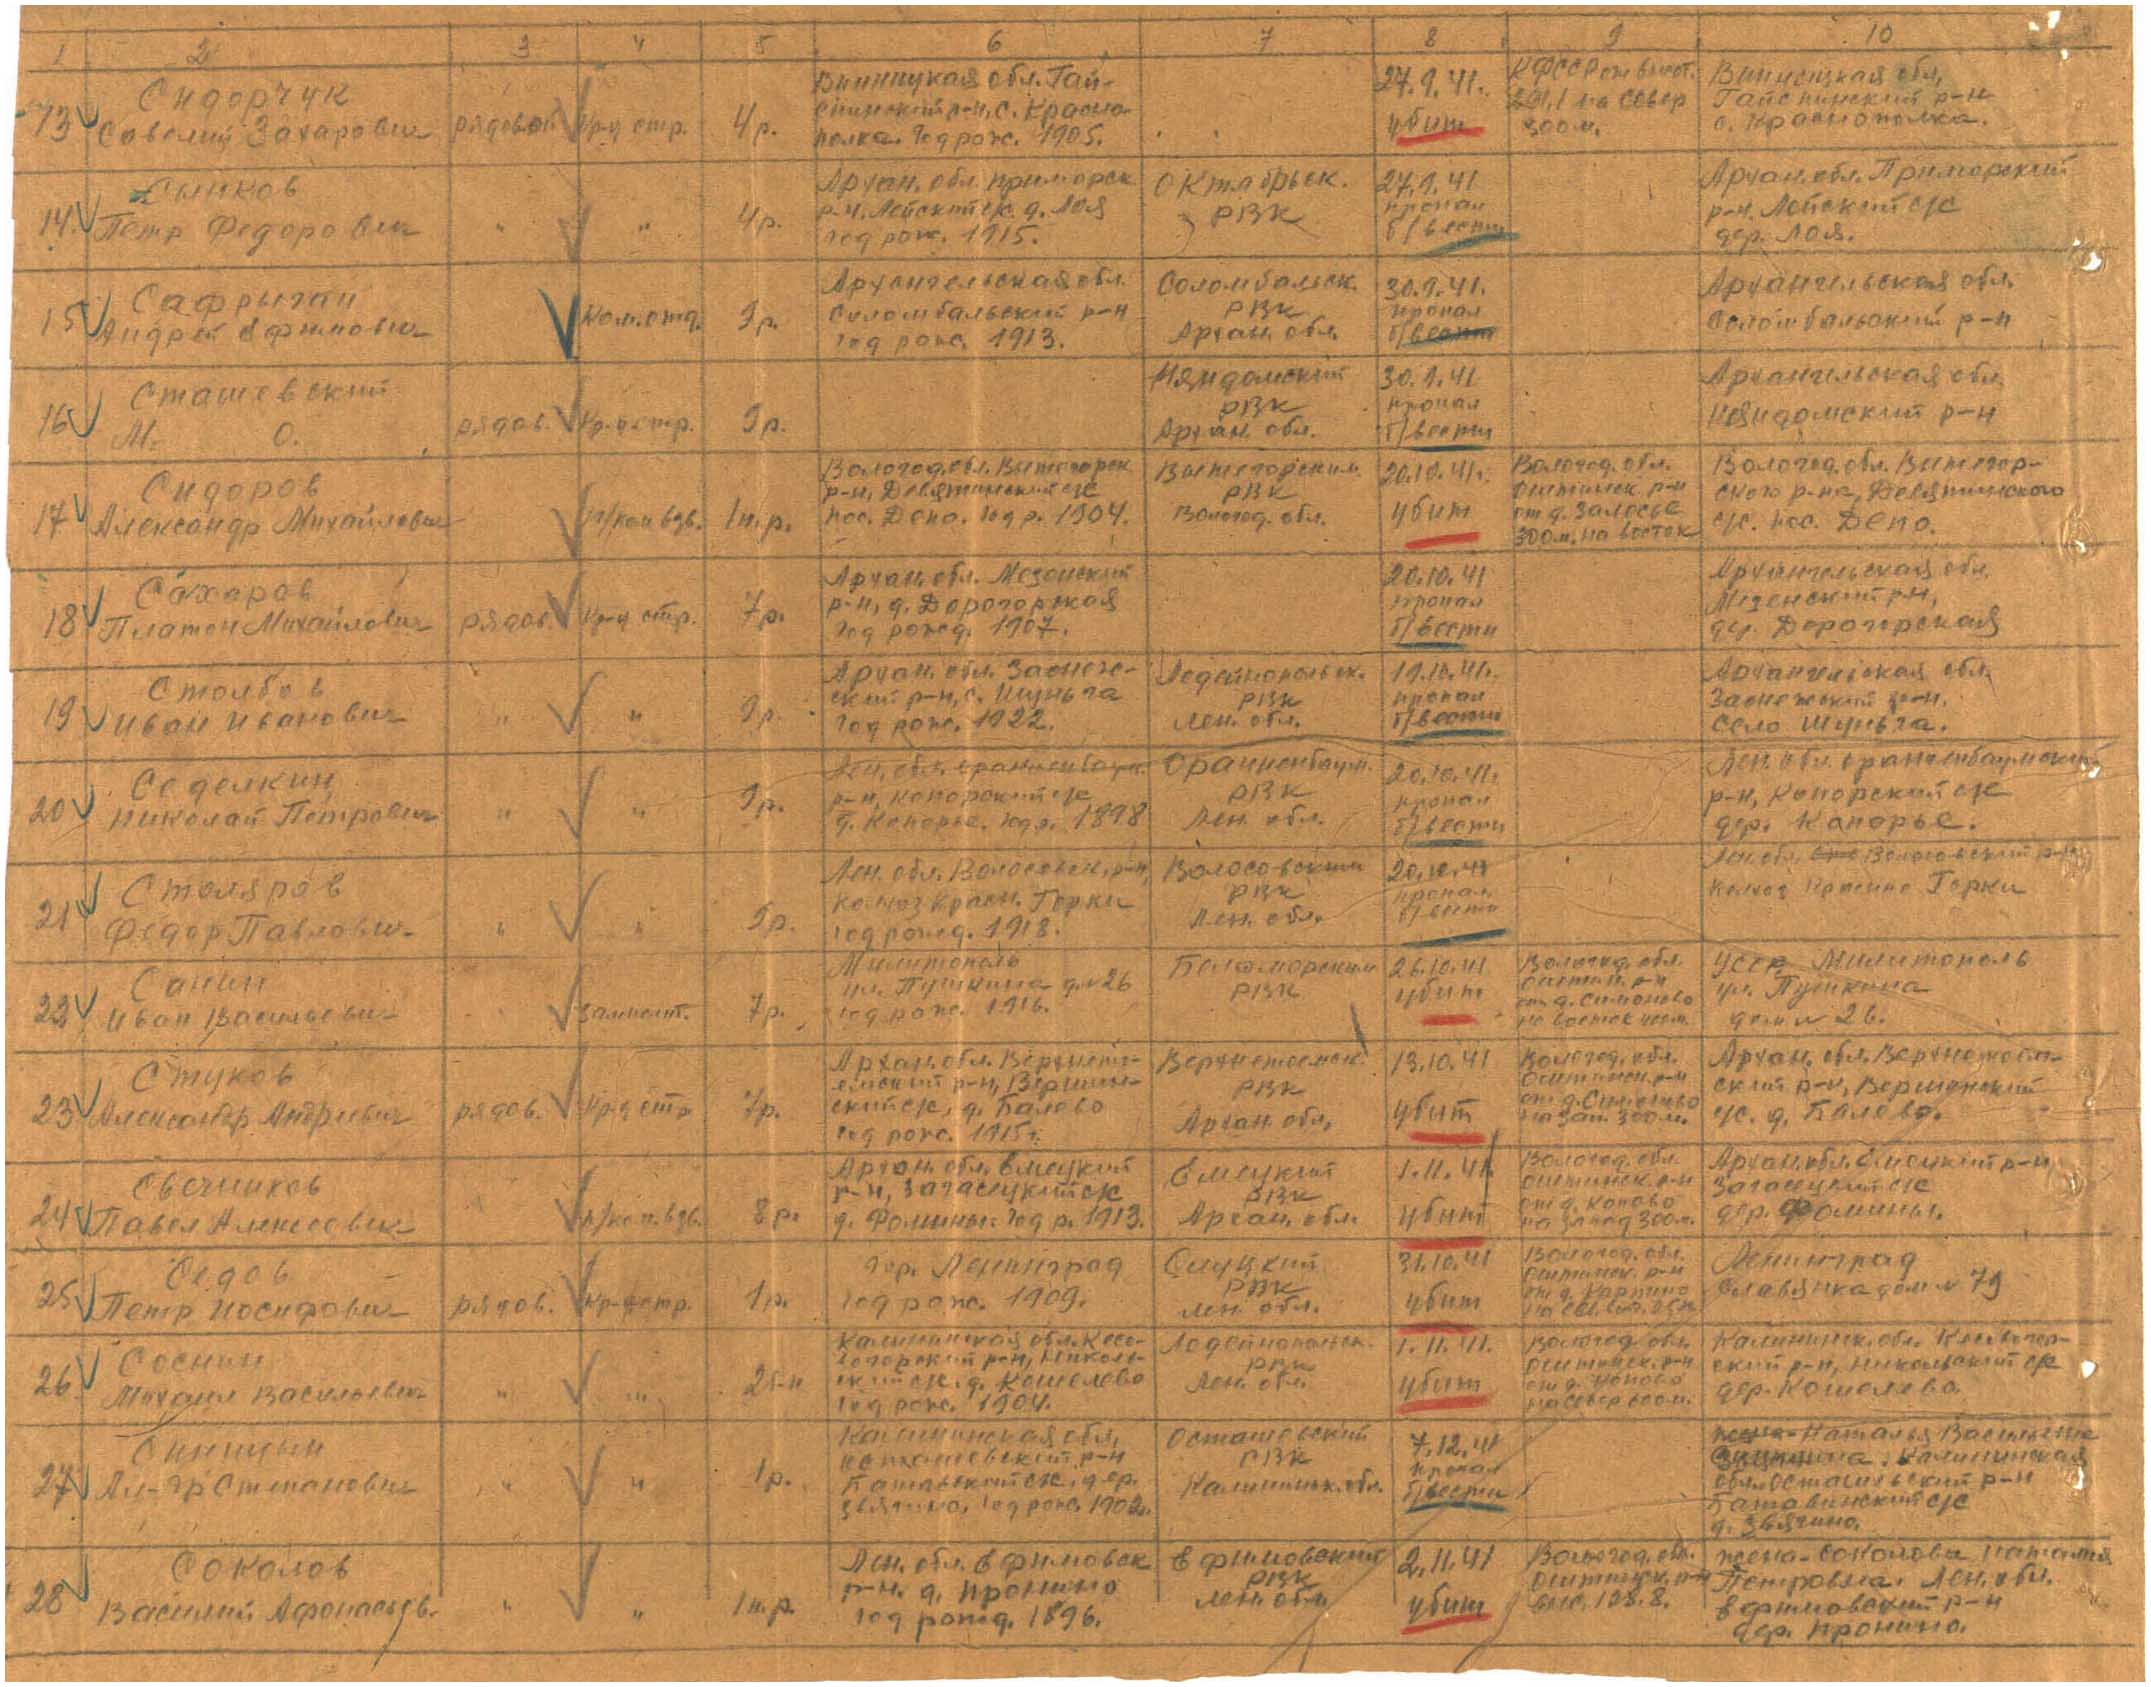 1 2 3 4 5 6 7 8 9 10
13 Сидорчук
Савелий Захарович
рядовой
Кр-ц стр.
4р.
Винницкая обл. Гай-
р-н, с. Красно-
полка. Год рож. 1905.
27.9.41.
убит
КФССР
на север
300м.
Винницкая обл.
Гайсинский р-н
с. Краснополка.
14
Петр Федорович
"
"
4р.
Архан. обл. Приморск
р-н. Лойский с/с. д. Лоя
год рож. 1915.
Октябрьск.
РВК
27.9.41
пропал
б/вести
Архан. обл. Приморский
р-н. Лойский с/с
дер. Лоя.
15 Сафрыган
Андрей Ефимович
Ком.отд.
9р.
Архангельская обл.
Соломбальский р-н
год рож. 1913.
Соломбальск.
РВК
Архан. обл.
30.9.41.
пропал
б/вести
Архангельская обл.
Соломбальский р-н
16 Сташевский
М. О.
рядов.
Кр-ц стр.
9р.
Няндомский
РВК
Архан. обл.
30.9.41
пропал
б/вести
Архангельская обл.
Няндомский р-н
17 Сидоров
Александр Михайлович
п/ком взв.
1п.р.
Вологод. обл. Вытегорск
р-н, Девятинский с/с
пос. Депо. Год р. 1904.
Вытегорским
РВК
Вологод. обл.
20.10.41г.
убит
Вологод. обл.
Оштинск. р-н
от д. Залесье
300м. на восток
Вологод. обл. Вытегор-
ского р-на, Девятинского
с/с. пос. Депо.
18 Сахаров
Платон Михайлович
рядов.
Кр-ц стр.
7р.
Архан. обл. Мезенский
р-н, д. Дорогорская
год рожд. 1907.
20.10.41
пропал
б/вести
Архангельская обл.
Мезенский р-н,
дер. Дорогорская
19 Столбов
Иван Иванович
"
"
9р.
Архан. обл. Заонеж-
ский р-н, с. Шуньга
год рож. 1922.
Лодейнопольск.
РВК
Лен. обл.
19.10.41.
пропал
б/вести
Архангельская обл.
Заонежский р-н.
село Шуньга.
20 Седелкин
Николай Петрович
"
"
9р.
Лен. обл. Ораниенбаум.
р-н, Копорский с/с
д. Копорье. Год р. 1898
Ораниенбаум.
РВК
Лен. обл.
20.10.41.
пропал
б/вести
Лен. обл. Ораниенбаумский
р-н, Копорский с/с
дер. Капорье.
21 Столяров
Федор Павлович
"
"
9р.
Лен. обл. Волосовск. р-н,
колхоз Красн. Горки
год рожд. 1918.
Волосовским
РВК
Лен. обл.
20.10.41
пропал
б/вести
Лен. обл. Волосовский р-н
колхоз Красные Горки
22 Санин
Иван Васильевич
Замполит.
7р.
Милитополь
ул. Пушкина д.№26
год рож. 1916.
Беломорским
РВК
26.10.41
убит
Вологод. обл.
Оштин. р-н
от д. Симоново
на восток
УССР Милитополь
ул. Пушкина
дом № 26.
23 Стуков
Александр Андреевич
рядов.
Кр-ц стр
7р.
Архан. обл. Верхнето-
емский р-н, Вершин-
ский с/с, д. Балово
год рож. 1915г.
Верхнетоемск.
РВК
Архан. обл.
13.10.41
убит
Вологод. обл.
Оштинск. р-н
от д. Симоново
на зап. 300м.
Архан. обл. Верхнетоем-
ский р-н, Вершинский
с/с. д. Балово.
24 Свечников
Павел Алексеевич
п/ком.взв.
8р.
Архан. обл. Емецкий
р-н, с/с
д. Фомины. Год р. 1913.
Емецкий
РВК
Архан. обл.
1.11.41
убит
Вологод. обл.
Оштинск. р-н
от д. Копово
на запад 300м.
Архан. обл. Емецкий р-н
с/с
дер. Фомины.
25 Седов
Петр Иосифович
рядов.
Кр-ц стр.
1р.
гор. Ленинград
год рож. 1909.
Слуцкий
РВК
Лен. обл.
31.10.41
убит
Вологод. обл.
Оштинск. р-н
от д.
Ленинград
Славянка дом № 79
26. Соснин
Михаил Васильевич
"
"
2б-н
Калининская обл. Кесо-
вогорский р-н, Николь-
ский с/с. д. Кошелево
год рож. 1904.
Лодейнопольск.
РВК
Лен. обл.
1.11.41.
убит
Вологод. обл.
Оштинск. р-н
от д. Копово
на север
Калининск. обл. Кесовогор-
ский р-н, Никольский с/с
дер. Кошелево.
27 Синицын
Ал-др Степанович
"
"
1р.
Калининская обл,
Осташевский р-н
с/с, дер.
Звягино, год рож. 1902г.
Осташевский
РВК
Калининск. обл.
7.12.41
пропал
б/вести
жена-Наталья Васильевна
Синицына. Калининская
обл. Осташевский р-н
с/с
д. Звягино.
28 Соколов
Василий Афонасьев.
"
"
1п.р.
Лен. обл. Ефимовск
р-н. д. Пронино
год рожд. 1896.
Ефимовский
РВК
Лен. обл.
2.11.41
убит
Вологод. обл.
Оштинск. р-н
выс. 128.8.
жена-Соколова Наталья
Петровна. Лен. обл.
Ефимовский р-н
дер. Пронино.